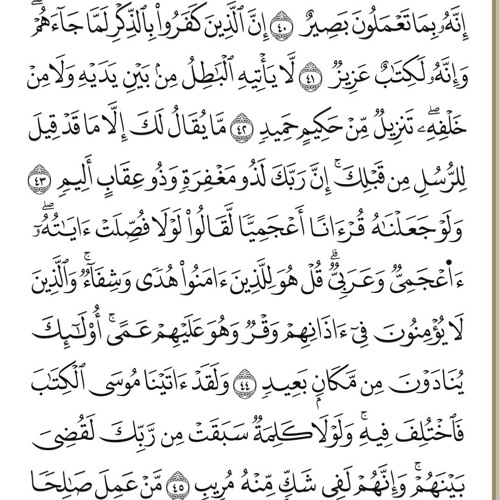 إِنَّهُۥ بِمَا تَعۡمَلُونَ بَصِيرٌ ٤٠ إِنَّ ٱلَّذِينَ كَفَرُواْ بِٱلذِّكۡرِ لَمَّا جَآءَهُمۡۖ
وَإِنَّهُۥ لَكِتَٰبٌ عَزِيزٞ ٤١ لَّا يَأۡتِيهِ ٱلۡبَٰطِلُ مِنۢ بَيۡنِ يَدَيۡهِ وَلَا مِنۡ
خَلۡفِهِۦۖ تَنزِيلٞ مِّنۡ حَكِيمٍ حَمِيدٖ ٤٢ مَّا يُقَالُ لَكَ إِلَّا مَا قَدۡ قِيلَ
لِلرُّسُلِ مِن قَبۡلِكَۚ إِنَّ رَبَّكَ لَذُو مَغۡفِرَةٖ وَذُو عِقَابٍ أَلِيمٖ ٤٣
وَلَوۡ جَعَلۡنَٰهُ قُرۡءَانًا أَعۡجَمِيّٗا لَّقَالُواْ لَوۡلَا فُصِّلَتۡ ءَايَٰتُهُۥٓۖ
ءَا۬عۡجَمِيّٞ وَعَرَبِيّٞۗ قُلۡ هُوَ لِلَّذِينَ ءَامَنُواْ هُدٗى وَشِفَآءٞۚ وَٱلَّذِينَ
لَا يُؤۡمِنُونَ فِيٓ ءَاذَانِهِمۡ وَقۡرٞ وَهُوَ عَلَيۡهِمۡ عَمًىۚ أُوْلَٰٓئِكَ
يُنَادَوۡنَ مِن مَّكَانِۭ بَعِيدٖ ٤٤ وَلَقَدۡ ءَاتَيۡنَا مُوسَى ٱلۡكِتَٰبَ
فَٱخۡتُلِفَ فِيهِۚ وَلَوۡلَا كَلِمَةٞ سَبَقَتۡ مِن رَّبِّكَ لَقُضِيَ
بَيۡنَهُمۡۚ وَإِنَّهُمۡ لَفِي شَكّٖ مِّنۡهُ مُرِيبٖ ٤٥ مَّنۡ عَمِلَ صَٰلِحٗا